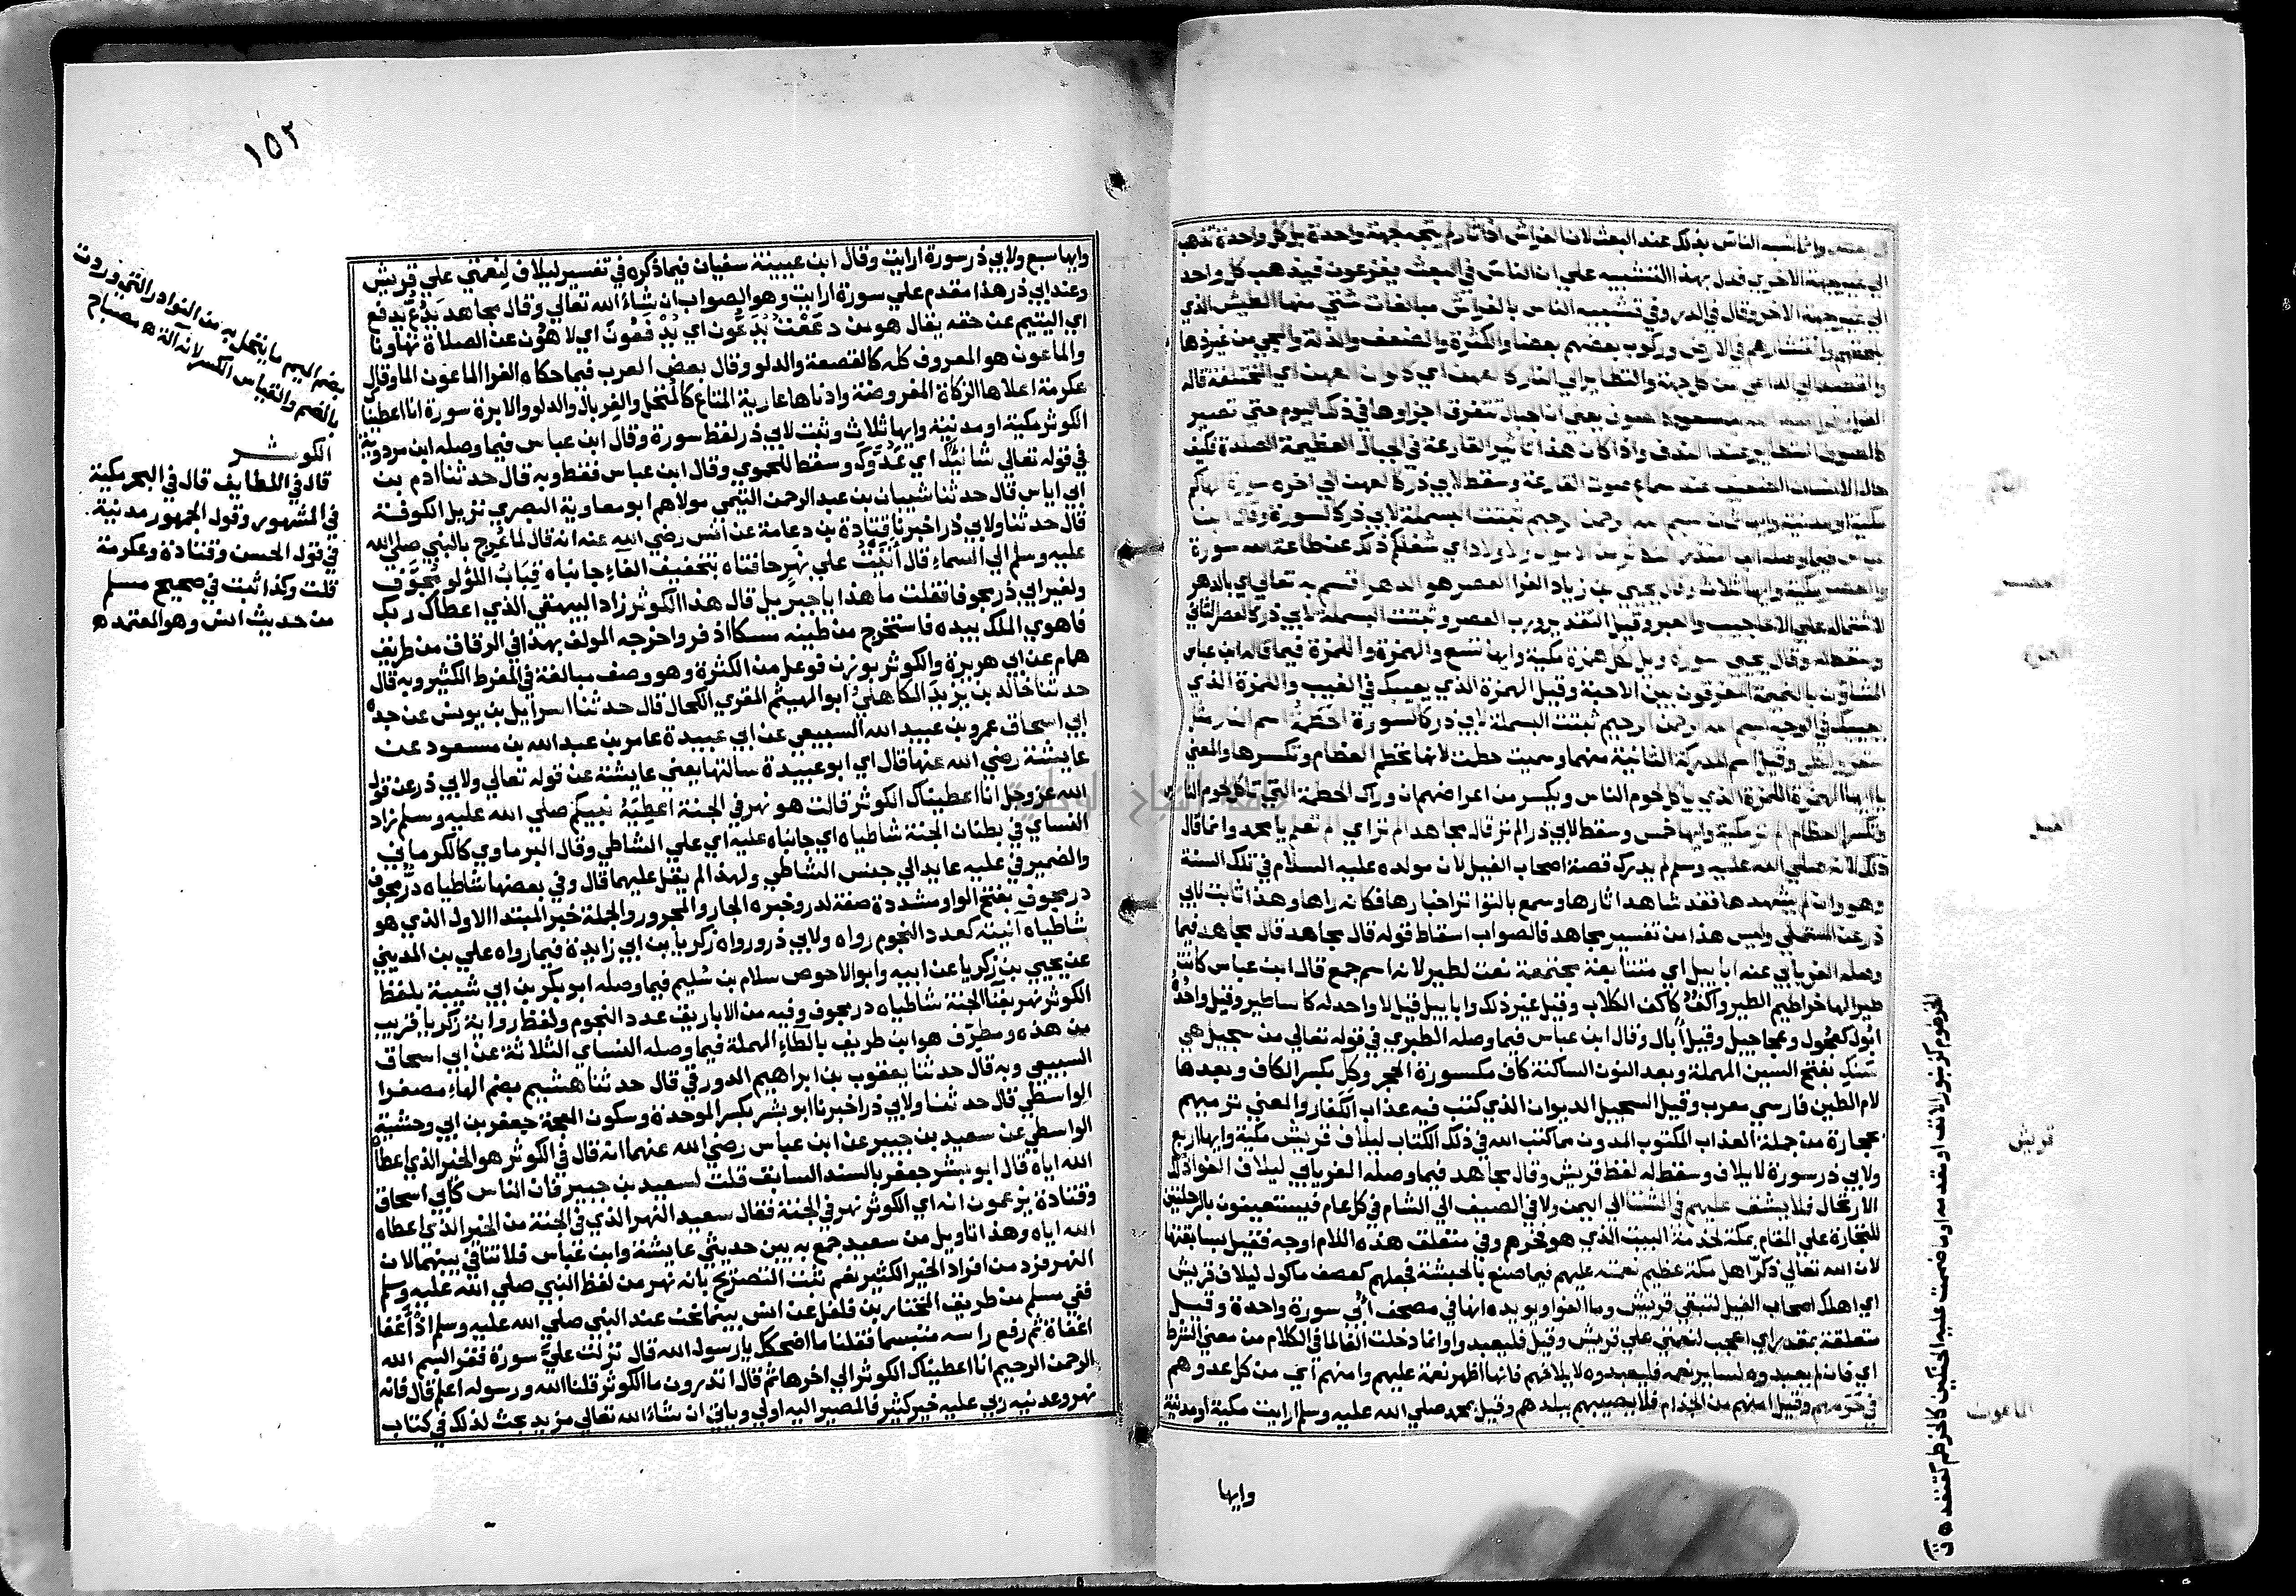 الي غير جهة الاخري فدل بهذا التشبيه علي ان الناس في البعث يفزعون فيذهب كل واحد
الي غير جهة الاخر وقال في الدر وفي تشبيه الناس بالفراش مبالغات شتي منها الطيش الذي
يلحقهم وانتشارهم في الارض وركوب بعضهم بعضا والكثرة والضعف والذلة والمجي من غير ذهاب
والقصد الي الداعي من كل جهة والتطاير الي النار كالعهن اي كالوان العهن اي المختلفة قاله
كالصوف المتطاير عند الندف واذا كان هذا تاثير القارعة في الجبال العظيمة الصلدة فكيف
حال الانسان الضعيف عند سماع صوت القارعة وسقط لابي ذر كالعهن الي اخره سورة الهاكم
مكية او مدنية وايها ثمان بسم الله الرحمن الرحيم ثبتت البسملة لابي ذر كالسورة وقال ابن
عباس فيما وصله ابن المنذر التكاثر من الاموال والاولاد اي شغلكم ذلك عن طاعة الله سورة
والعصر مكية وايها ثلاث وقال يحيي بن زياد الفرا العصر هو الدهر اقسم به تعالي اي بالدهر
لاشتماله علي الاعاجيب والعبر وقيل التقدير ورب العصر وثبتت البسملة لابي ذر كالعصر الثاني
وسقط له وقال يحيي سورة ويل لكل همزة مكية وايها تسع والهمزة واللمزة فيما قاله ابن عباس
المشاؤن بالنميمة المفرقون بين الاحبة وقيل الهمزة الذي يعيبك في الغيب واللمزة الذي
يعيبك في الوجه بسم الله الرحمن الرحيم ثبتت البسملة لابي ذر كالسورة الحطمة اسم النار مثل
سقر ولظي وقيل اسم للدركة الثانية منها وسميت حطمة لانها تحطم العظام وتكسرها والمعني
يا ايها الهمزة اللمزة الذي ياكل لحوم الناس ويكسر من اعراضهم ان وراك الحطمة التي تاكل لحوم الناس
وتكسر العظام الم تر مكية وايها خمس وسقط لابي ذر الم تر قال مجاهد الم تر اي الم تعلم يا محمد وانما قال
ذلك لانه صلي الله عليه وسلم لم يدرك قصة اصحاب الفيل لان مولده عليه السلام في تلك السنة
وهو وان لم يشهدها فقد شاهد اثارها وسمع بالتواتر اخبارها فكانه راها وهذا ثابت لابي
ذر عن المستملي وليس هذا من تفسير مجاهد فالصواب اسقاط قوله قال مجاهد قال مجاهد فيما
وصله الفريابي عنه ابابيل اي متتابعة مجتمعة نعت لطير لانه اسم جمع قال ابن عباس كانت
طيرا لها خراطيم الطير واكف كاكف الكلاب وقيل غير ذلك وابابيل قيل لا واحد له كاساطير وقيل واحده
ابول كعجول وعجاجيل وقيل ابال وقال ابن عباس فيما وصله الطبري في قوله تعالي من سجيل هي
سنك بفتح السين المهملة وبعد النون الساكنة كاف مكسورة الحجر وكل بكسر الكاف وبعدها
لام الطين فارسي معرب وقيل السجيل الديوان الذي كتب فيه عذاب الكفار والمعني ترميهم
بحجارة من جملة العذاب المكتوب المدون مما كتب الله في ذلك الكتاب ليلاف قريش مكية وايها اربع
ولابي ذر سورة لايلاف وسقط له لفظ قريش وقال مجاهد فيما وصله الفريابي ليلاف الفوا ذلك
الارتحال فلا يشق عليهم في الشتا الي اليمن ولا في الصيف الي الشام في كل عام فيستعينون بالرحلتين
للتجارة علي المقام بمكة لخدمة البيت الذي هو فخرهم وفي متعلق هذه اللام اوجه فقيل بسابقتها
لان الله تعالي ذكر اهل مكة عظيم نعمته عليهم فيما صنع بالحبشة فجعلهم كعصف ماكول ليلاف قريش
اي اهلك اصحاب الفيل لتبقي قريش وما الفوا ويويده انها في مصحف ابي سورة واحدة وقيل
متعلقة بمقدر اي اعجب لنعمتي علي قريش وقيل فليعبدوا وانما دخلت الفا لما في الكلام من معني الشرط
اي فان لم يعبدوه لساير نعمه فليعبدوه لايلافهم فانها اظهر نعمة عليهم وامنهم اي من كل عدوهم
في حرمهم وقيل امنهم من الجذام فلا يصيبهم ببلدهم وقيل بمحمد صلي الله عليه وسلم ارايت مكية او مدنية
وايها
العصر
الهمزة
الفيل
قريش
الماعون
١٥٢
وايها سبع ولابي ذر سورة ارايت وقال ابن عيينة سفيان فيما ذكره في تفسير ليلاف لنعمتي علي قريش
وعند ابي ذر هذا مقدم علي سورة ارايت وهو الصواب ان شاء الله تعالي وقال مجاهد يدع يدفع
اي اليتيم عن حقه يقال هو من دععت يدعون اي يدفعون اي لاهون عن الصلاة تهاونا
والماعون هو المعروف كله كالقصعة والدلو وقال بعض العرب فيما حكاه الفرا الماعون الما وقال
عكرمة اعلاها الزكاة المفروضة وادناها عارية المتاع كالمنخل والغربال والدلو والابرة سورة انا اعطيناك
الكوثر مكية او مدنية وايها ثلاث وثبت لابي ذر لفظ سورة وقال ابن عباس فيما وصله ابن مردوية
في قوله تعالي شانيك اي عدوك وسقط للحموي وقال ابن عباس فقط وبه قال حدثنا ادم بن
ابي اياس قال حدثنا شيبان بن عبد الرحمن التيمي مولاهم ابو معاوية البصري نزيل الكوفة
قال حدثنا ولابي ذر اخبرنا قتادة بن دعامة عن انس رضي الله عنه انه قال لما عرج بالنبي صلي الله
عليه وسلم الي السماء قال اتيت علي نهر حافتاه بتخفيف الفاء جانباه قباب اللؤلو مجوف
ولغير ابي ذر مجوفا فقلت ما هذا يا جبريل قال هذا الكوثر زاد البيهقي الذي اعطاك ربك
فاهوي الملك بيده فاستخرج من طينه مسكا اذفر واخرجه المولف بهذا في الرقاق من طريق
همام عن ابي هريرة والكوثر بوزن فوعل من الكثرة وهو وصف مبالغة في المفرط الكثير وبه قال
حدثنا خالد بن يزيد الكاهلي ابو الهيثم المقري الكحال قال حدثنا اسرائيل بن يونس عن جده
ابي اسحاق عمرو بن عبيد الله السبيعي عن ابي عبيدة عامر بن عبد الله بن مسعود عن
عايشة رضي الله عنها قال اي ابو عبيدة سالتها يعني عايشة عن قوله تعالي ولابي ذر عن قول
الله عز وجل انا اعطيناك الكوثر قالت هو نهر في الجنة اعطيه نبيكم صلي الله عليه وسلم زاد
النساي في بطنان الجنة شاطياه اي جانباه عليه اي علي الشاطي وقال البرماوي كالكرماني
والضمير في عليه عايد الي جنس الشاطي ولهذا لم يقل عليهما قال وفي بعضها شاطياه در مجوف
در مجوف بفتح الواو مشددة صفة لدر وخبره الجار والمجرور والجملة خبر المبتدا الاول الذي هو
شاطياه آنيته كعدد النجوم رواه ولابي ذر ورواه زكريا بن ابي زايدة فيما رواه علي بن المديني
عن يحيي بن زكريا عن ابيه وابو الاحوص سلام بن سليم فيما وصله ابو بكر بن ابي شيبة بلفظ
الكوثر نهر بفنا الجنة شاطياه در مجوف وفيه من الاباريق عدد النجوم ولفظ رواية زكريا قريب
من هذه ومطرف هو ابن طريف بالطاء المهملة فيما وصله النساي الثلاثة عن ابي اسحاق
السبيعي وبه قال حدثنا يعقوب بن ابراهيم الدورقي قال حدثنا هشيم بضم الهاء مصغرا
الواسطي قال حدثنا ولابي ذر اخبرنا ابو بشر بكسر الموحدة وسكون المعجمة جعفر بن ابي وحشية
الواسطي عن سعيد بن جبير عن ابن عباس رضي الله عنهما انه قال في الكوثر هو الخير الذي اعطاه
الله اياه قال ابو بشر جعفر بالسند السابق قلت لسعيد بن جبير فان الناس كابي اسحاق
وقتادة يزعمون انه اي الكوثر نهر في الجنة فقال سعيد النهر الذي في الجنة من الخير الذي اعطاه
الله اياه وهذا تاويل من سعيد جمع به بين حديثي عايشة وابن عباس فلا تنافي بينهما لان
النهر فرد من افراد الخير الكثير نعم ثبت التصريح بانه نهر من لفظ النبي صلي الله عليه وسلم
ففي مسلم من طريق المختار بن فلفل عن انس بينما نحن عند النبي صلي الله عليه وسلم اذ اغفا
اغفاة ثم رفع راسه متبسما فقلنا ما اضحكك يا رسول الله قال نزلت علي سورة فقرا بسم الله
الرحمن الرحيم انا اعطيناك الكوثر الي اخرها ثم قال اتدرون ما الكوثر قلنا الله ورسوله اعلم قال فانه
نهر وعدنيه ربي عليه خير كثير فالمصير اليه اولي وياتي ان شاء الله تعالي مزيد بحث لذلك في كتاب
بضم الميم ما ينخل به من النوادر التي وردت
بالضم والقياس الكسر لانه آلة ه مصباح
الكوثر
قال في اللطايف قال في البحر مكية
في المشهور وقول الجمهور مدنية
في قول الحسن وقتادة وعكرمة
قلت وكذا ثبت في صحيح مسلم
من حديث انس وهو المعتمد ه